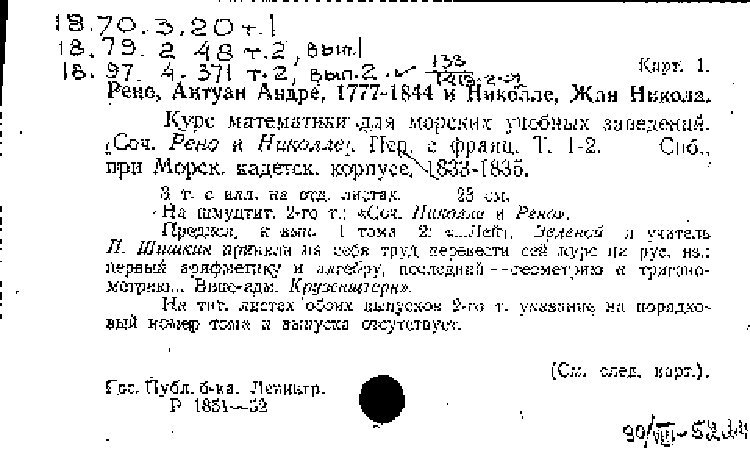 18.70.3.20 т.1
18.79. 2 48 т.2, вып.1
18.97. 4. 371 т.2, вып.2
Карт. 1.
Рено, Антуан Андре, 1777-1844 и Николле, Жан Никола.
Курс математики для морских учебных заведений.
(Соч. Рено и Николле). Пер. с франц. Т. 1-2. Спб.,
при Морск. кадетск. корпусе, 1833-1835.
3 т. с илл. на отд. листах. 23 см.
На шмуцтит. 2-го т.: «Соч. Николле и Рено».
Предисл. к вып. 1 тома 2: «...Лейт. Зеленой и учитель
П. Шишкин приняли на себя труд перевести сей курс на рус. яз.:
первый арифметику и алгебру, последний — геометрию и тригоно-
метрию... Вице-адм. Крузенштерн».
На тит. листах обоих выпусков 2-го т. указание на порядко-
вый номер тома и выпуска отсутствует.
(См. след. карт.).
Гос. Публ. б-ка. Ленингр.
Р 1831—52
90/VIII-